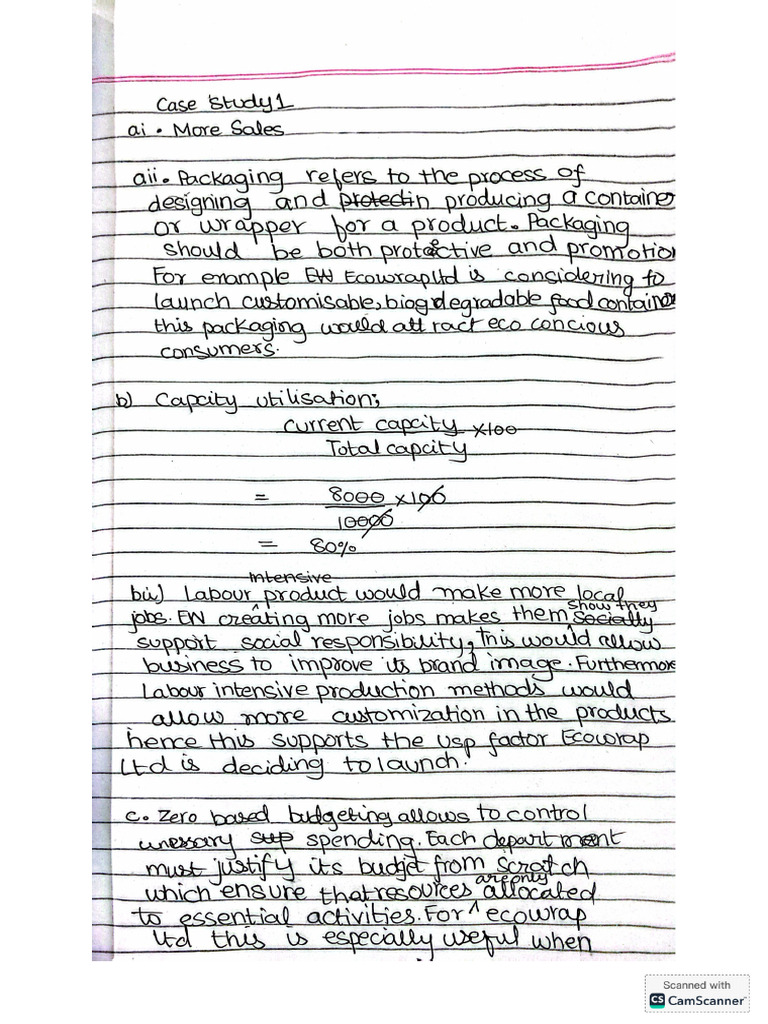 Case Study 1
ai . More Sales
aii. Packaging refers to the process of
designing and protectin producing a container
or wrapper for a product. Packaging
should be both protective and promotio
For example EW Ecowrap Ltd is considering to
launch customisable, biogdegradable food container
this packaging would attract eco concious
consumers.
b) Capcity utilisation;
current capcity x100
Total capcity
= 8000 x100
10000
= 80%
intensive
bii) Labour product would make more local
jobs. EW creating more jobs makes them show they socially
support social responsibility, this would allow
business to improve its brand image. Furthermore
Labour intensive production methods would
allow more customization in the products
hence this supports the usp factor Ecowrap
Ltd is deciding to launch.
c. Zero based budgeting allows to control
unessary sup spending. Each department
must justify its budget from scratch
which ensure that resources are only allocated
to essential activities. For ecowrap
Ltd this is especially useful when
Scanned with
CS CamScanner